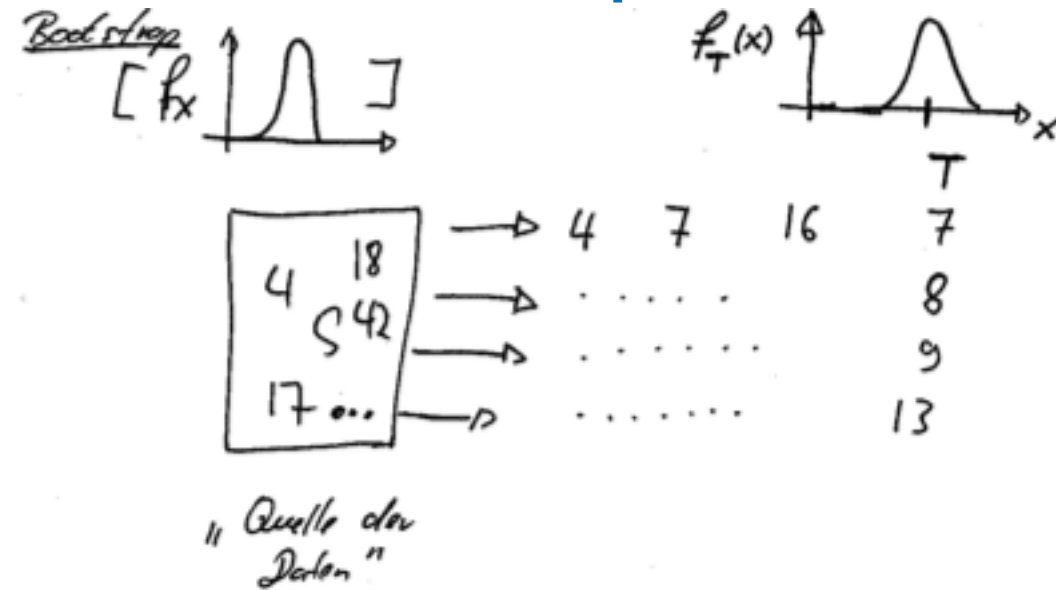 Bootstrap
[ fx ]
f_T(x)
x
T
4 7 16 7
4 18
S 42
17 ...
. . . . . 8
. . . . . . 9
. . . . . . . 13
„Quelle der
Daten"